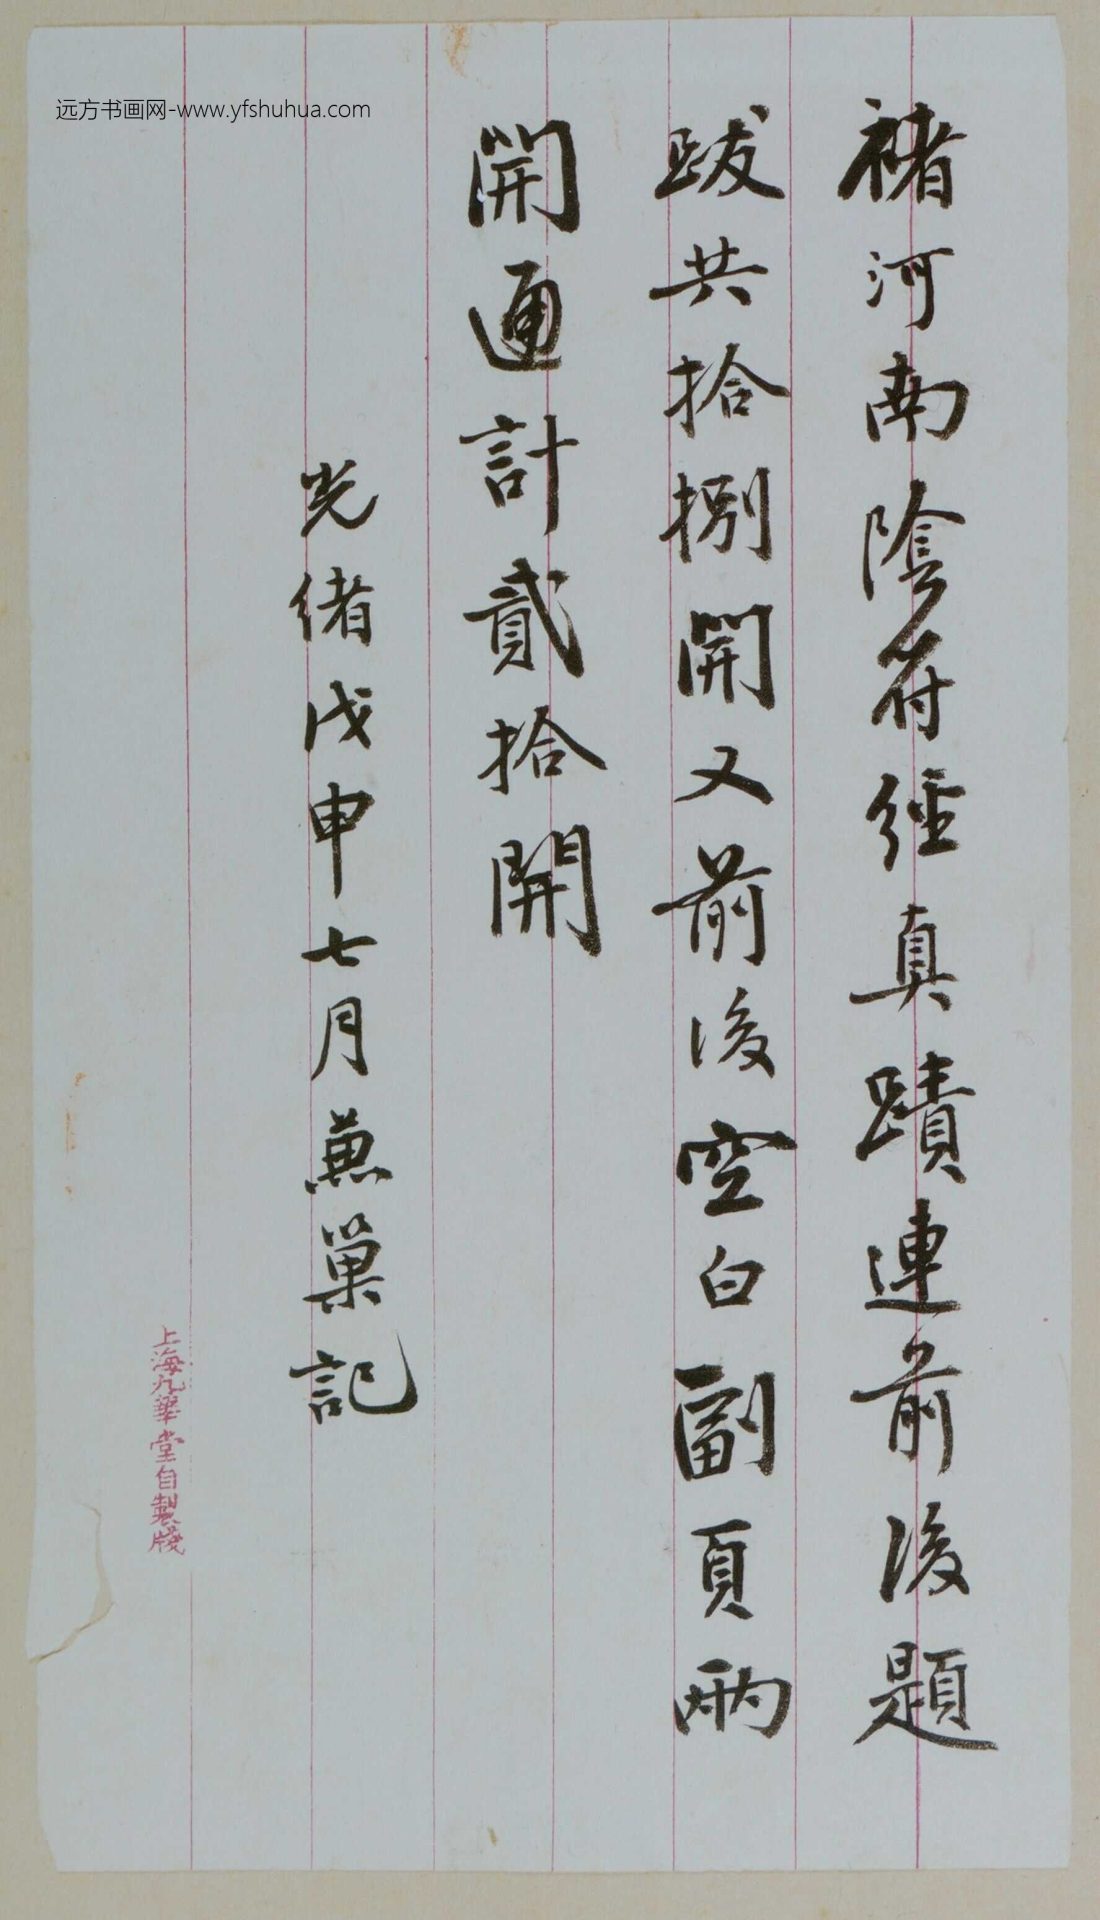 远方书画网-www.yfshuhua.com
褚河南陰符經真蹟連前後題
跋共拾捌開又前後空白副頁兩
開通計貳拾開
光緒戊申七月兼巢記
上海九華堂自製牋